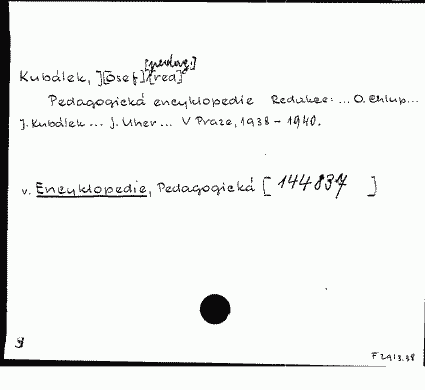 [pedag.]
Kubálek, J[osef] [red]
Pedagogická encyklopedie Redakce: ... O. Chlup...
J. Kubálek ... J. Uher ... V Praze, 1938 - 1940.
v. Encyklopedie, Pedagogická [ 144837 ]
F 2913.38